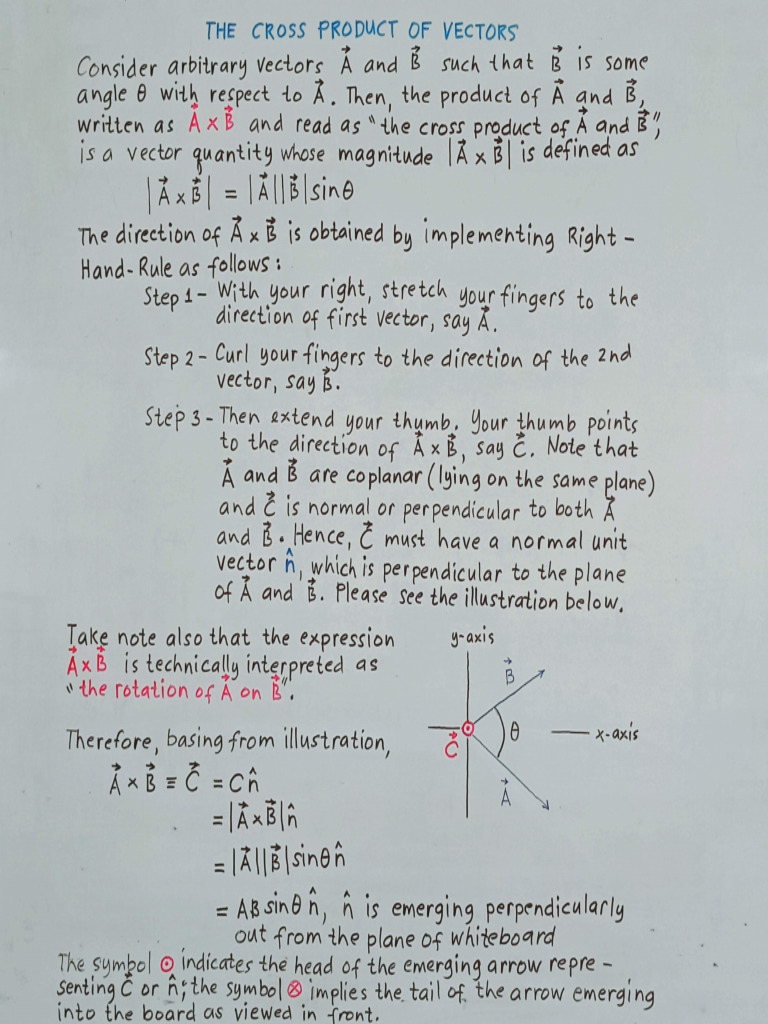 THE CROSS PRODUCT OF VECTORS
Consider arbitrary vectors A⃗ and B⃗ such that B⃗ is some
angle θ with respect to A⃗. Then, the product of A⃗ and B⃗,
written as A⃗ x B⃗ and read as "the cross product of A⃗ and B⃗",
is a vector quantity whose magnitude |A⃗ x B⃗| is defined as
|A⃗ x B⃗| = |A⃗||B⃗|sinθ
The direction of A⃗ x B⃗ is obtained by implementing Right-
Hand-Rule as follows:
Step 1 - With your right, stretch your fingers to the
direction of first vector, say A⃗.
Step 2 - Curl your fingers to the direction of the 2nd
vector, say B⃗.
Step 3 - Then extend your thumb. Your thumb points
to the direction of A⃗ x B⃗, say C⃗. Note that
A⃗ and B⃗ are coplanar (lying on the same plane)
and C⃗ is normal or perpendicular to both A⃗
and B⃗. Hence, C⃗ must have a normal unit
vector n̂, which is perpendicular to the plane
of A⃗ and B⃗. Please see the illustration below.
Take note also that the expression
A⃗ x B⃗ is technically interpreted as
"the rotation of A⃗ on B⃗".
Therefore, basing from illustration,
A⃗ x B⃗ ≡ C⃗ = C n̂
= |A⃗ x B⃗| n̂
= |A⃗||B⃗|sinθ n̂
= AB sinθ n̂, n̂ is emerging perpendicularly
out from the plane of whiteboard
y-axis
B⃗
θ
x-axis
C⃗
A⃗
The symbol ⊙ indicates the head of the emerging arrow repre-
senting C⃗ or n̂; the symbol ⊗ implies the tail of the arrow emerging
into the board as viewed in front.